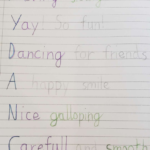 Yay! So fun!
Dancing for friends
A happy, smile
Nice galloping
Carefull and smooth